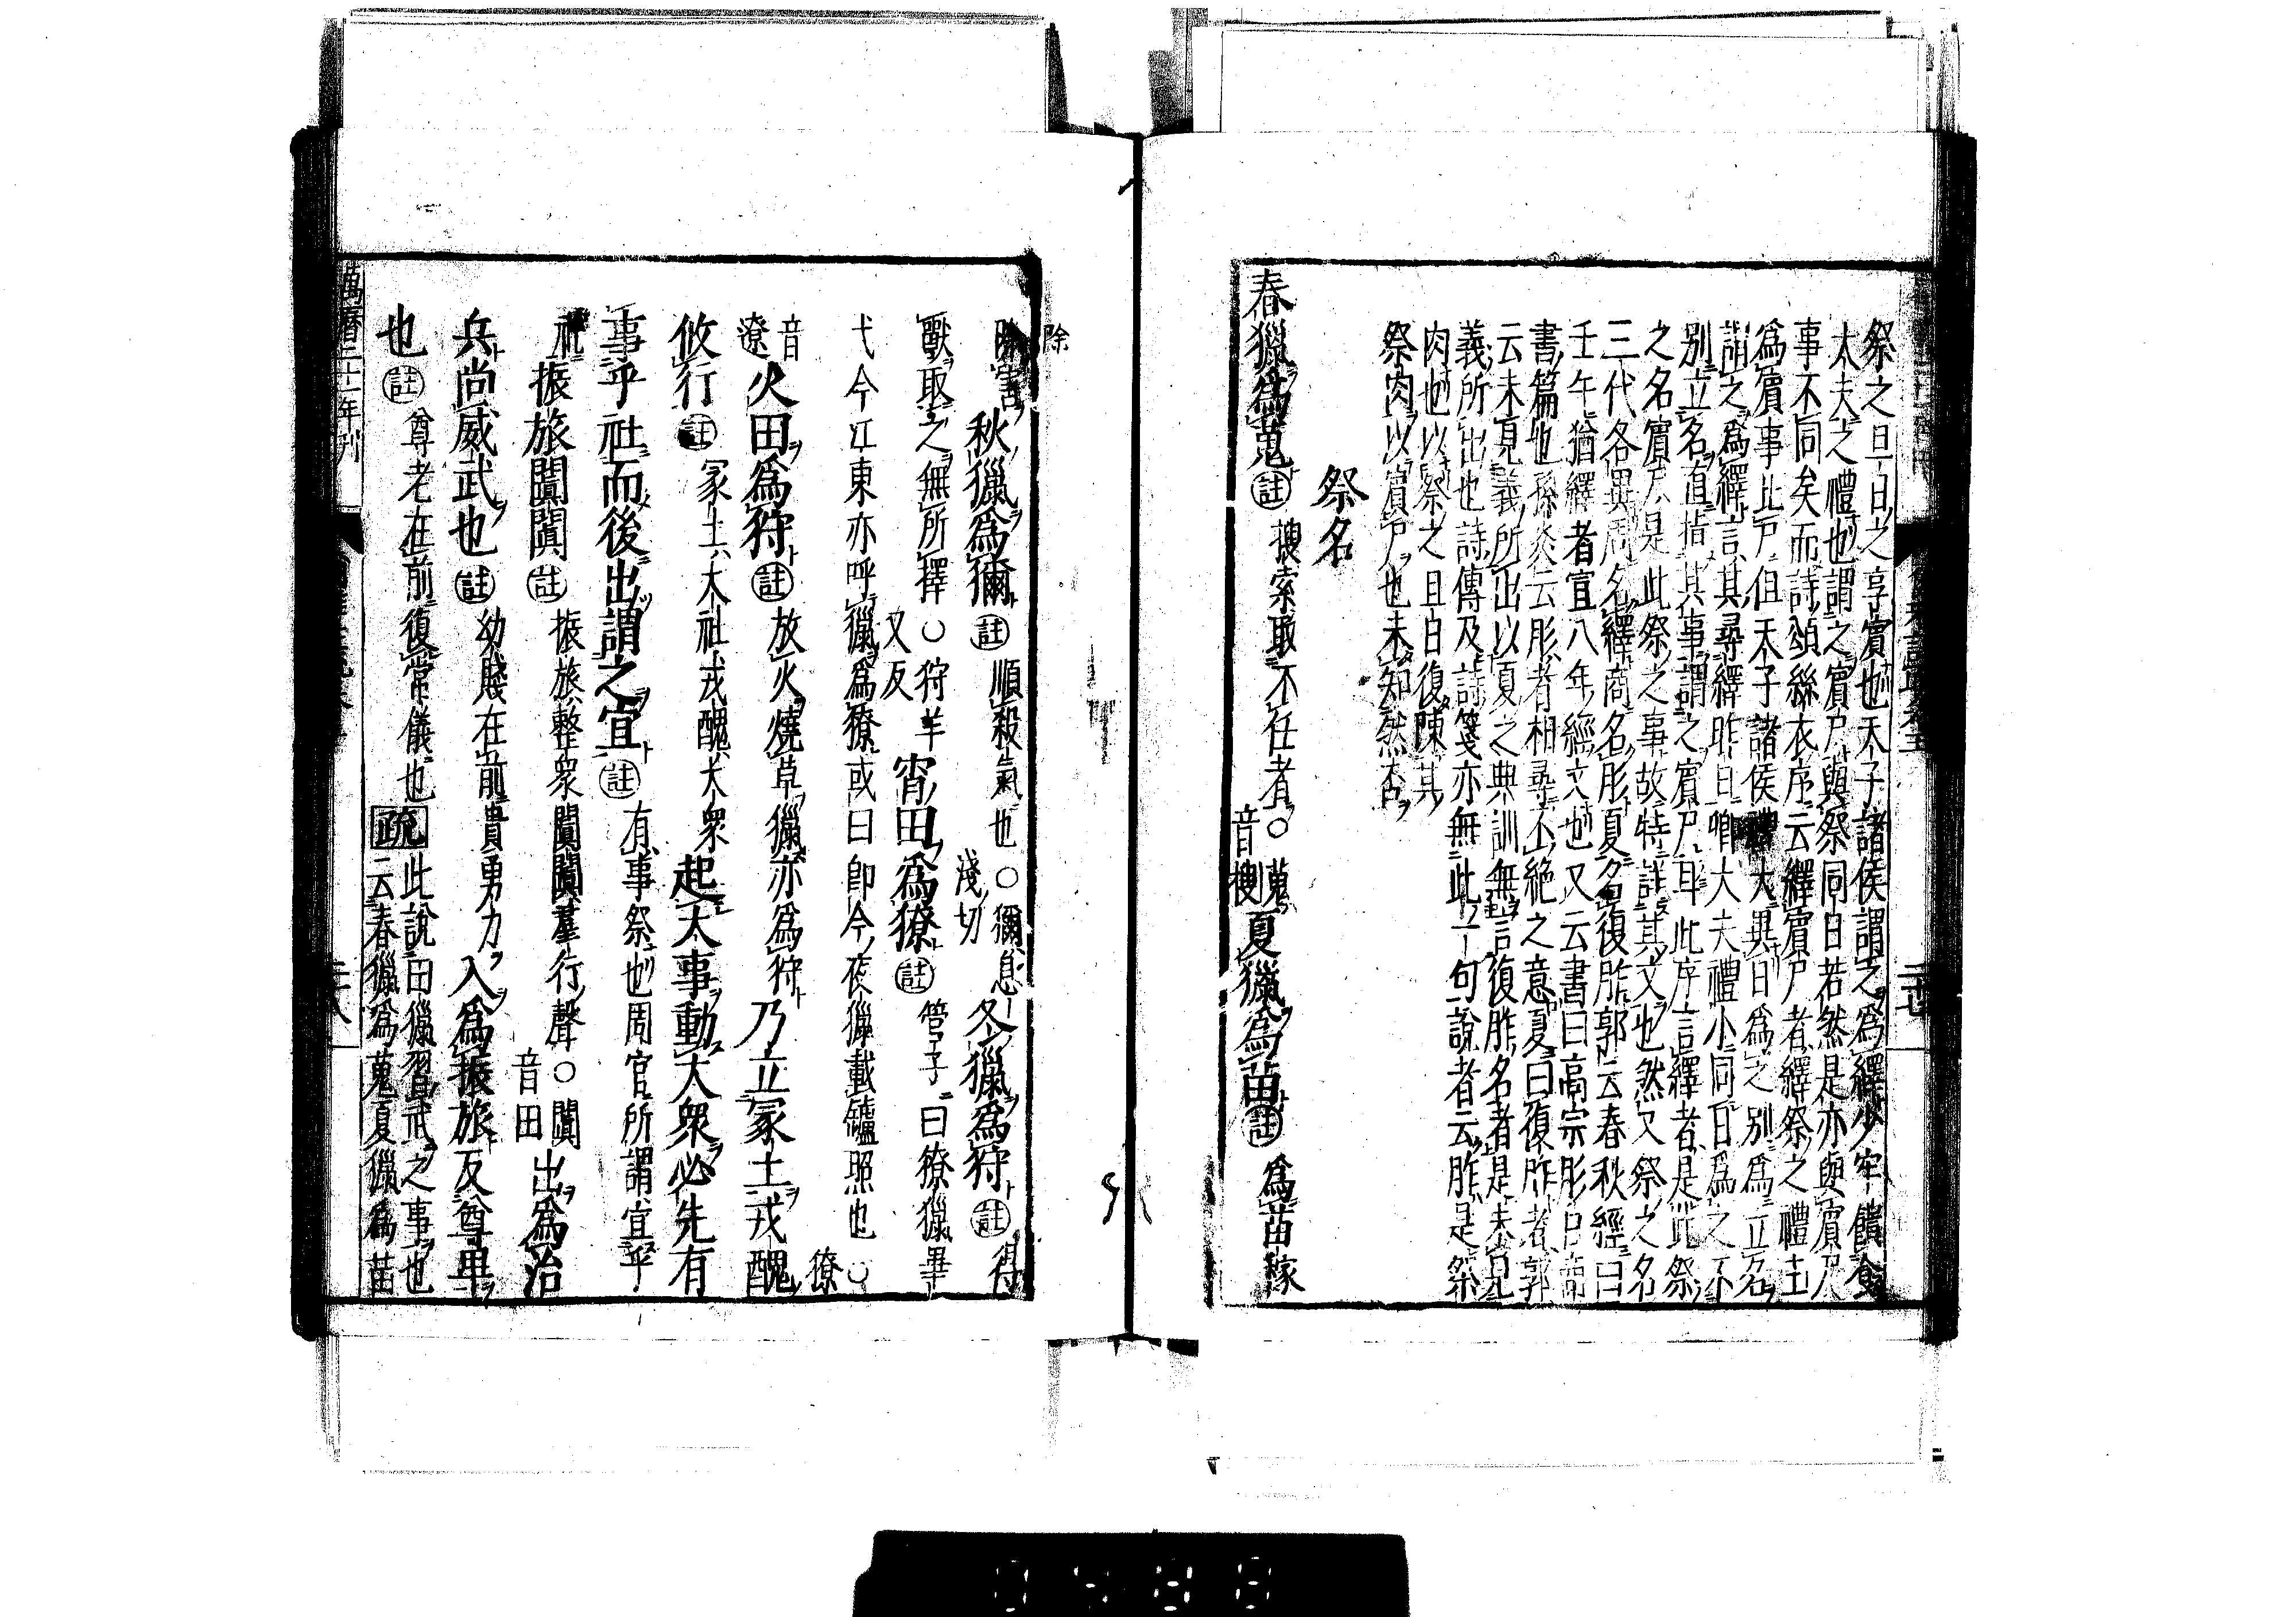 祭之旦日之享賓也天子諸侯謂之爲繹少牢饋食
大夫之禮也謂之賓尸與祭同日若然是亦與賓尸
事不同矣而詩頌絲衣序云繹賓尸者繹祭之禮主
爲賓事此尸但天子諸侯禮大異日爲之別爲立名
謂之爲繹言其尋繹昨日卿大夫禮小同日爲之不
別立名直指其事謂之賓尸耳此序言繹者是此祭
之名賓尸是此祭之事故特詳其文也然又祭之名
三代各異周名繹商名肜夏名復胙郭云春秋經曰
壬午猶繹者宣八年經文也又云書曰高宗肜日商
書篇也孫炎云肜者相尋不絕之意夏曰復胙者郭
云未見義所出以夏之典訓無言復胙名者是未見
義所出也詩傳及詩箋亦無此一句說者云胙是祭
肉也以祭之旦日復陳其
祭肉以賓尸也未知然否
祭名
春獵爲蒐 註 搜索取不任者○蒐音搜 夏獵爲苗 註 爲苗稼
除
除害 秋獵爲獮 註 順殺氣也○獮息淺切 冬獵爲狩 註 得
獸取之無所擇○狩羊又反 宵田爲獠 註 管子曰獠獵畢
弋今江東亦呼獵爲獠或曰即今夜獵載鑪照也○獠
音遼 火田爲狩 註 放火燒草獵亦爲狩 乃立冢土戎醜
攸行 註 冢土大社戎醜大衆 起大事動大衆必先有
事乎社而後出謂之宜 註 有事祭也周官所謂宜乎
社 振旅闐闐 註 振旅整衆闐闐羣行聲○闐音田 出爲治
兵尚威武也 註 幼賤在前貴勇力 入爲振旅反尊卑
也 註 尊老在前復常儀也 疏 此說田獵習武之事也
云春獵爲蒐夏獵爲苗
萬曆二十一年刊